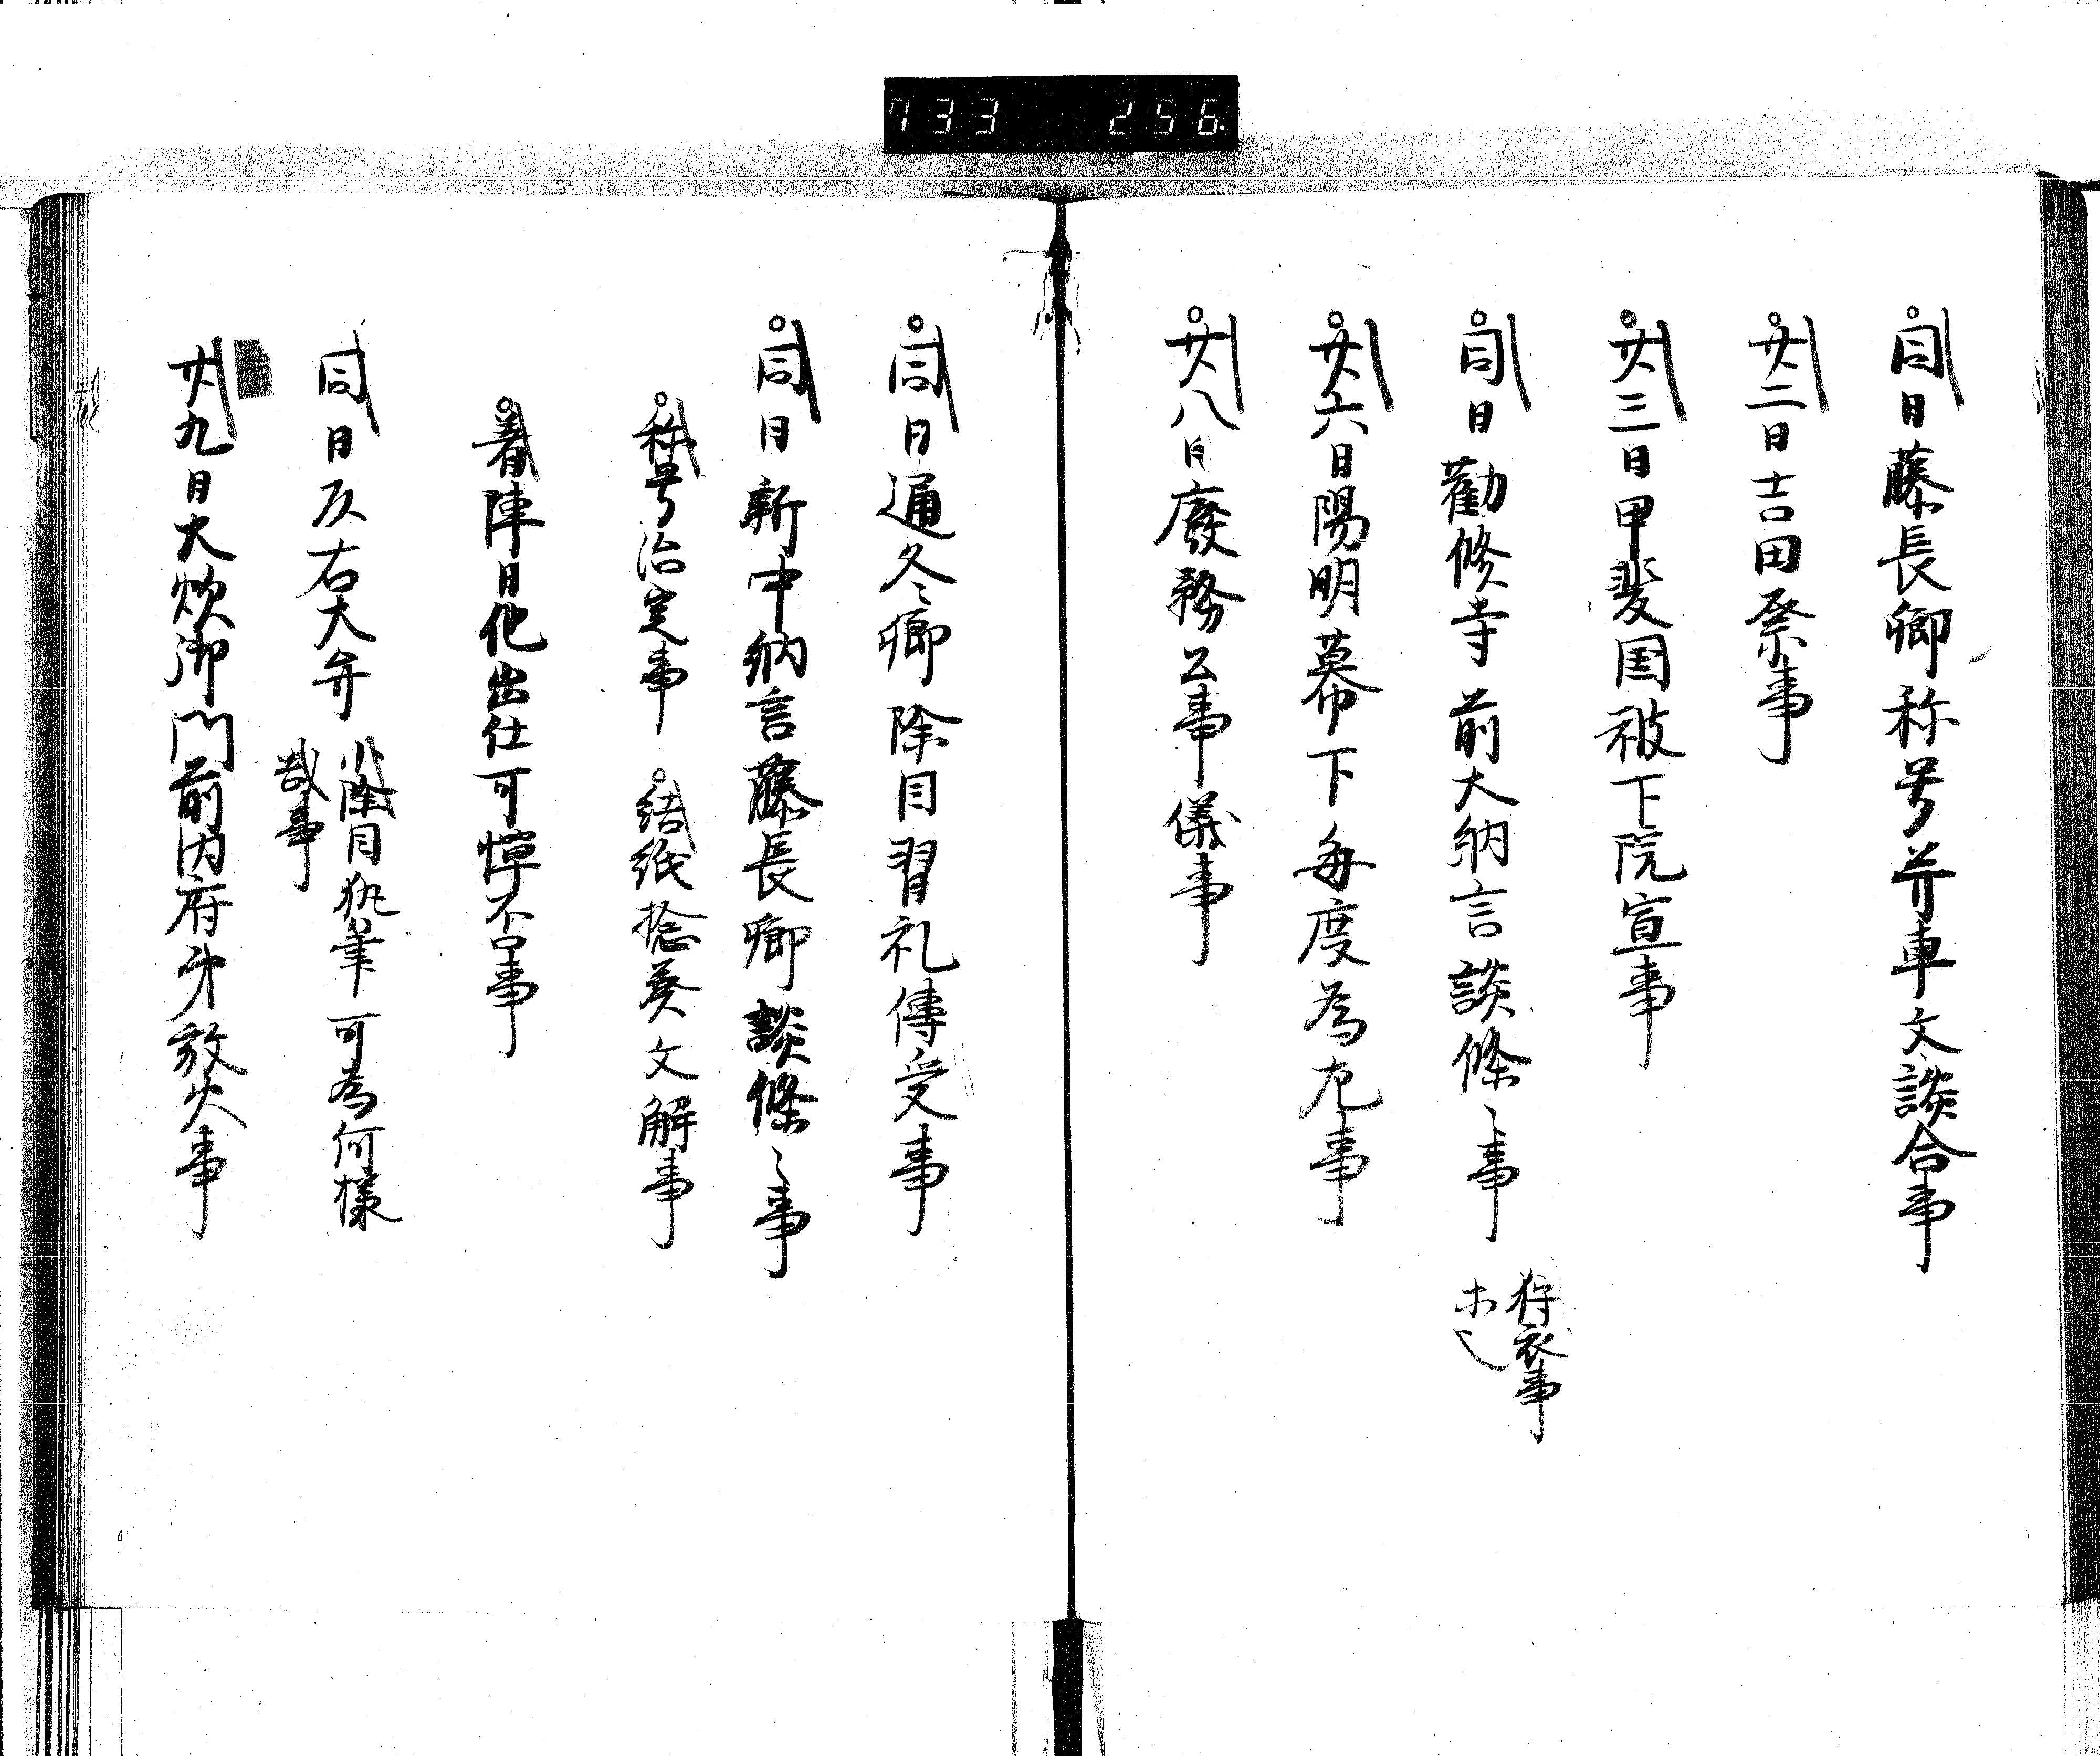 733 256
同日藤長卿称号并車文談合事
廿二日吉田祭事
廿三日甲斐国被下院宣事
同日勧修寺前大納言談條々事 狩衣事
廿六日陽明幕下毎度為尤事
廿八日廃務公事儀事
同日通冬卿除目習礼傳受事
同日新中納言藤長卿談條々事
称号治定事 結紙捻葵文解事
着陣日他出仕可憚不事
同日仄右大弁 小除目執筆可為何様
哉事
廿九日大炊御門前内府弟放火事